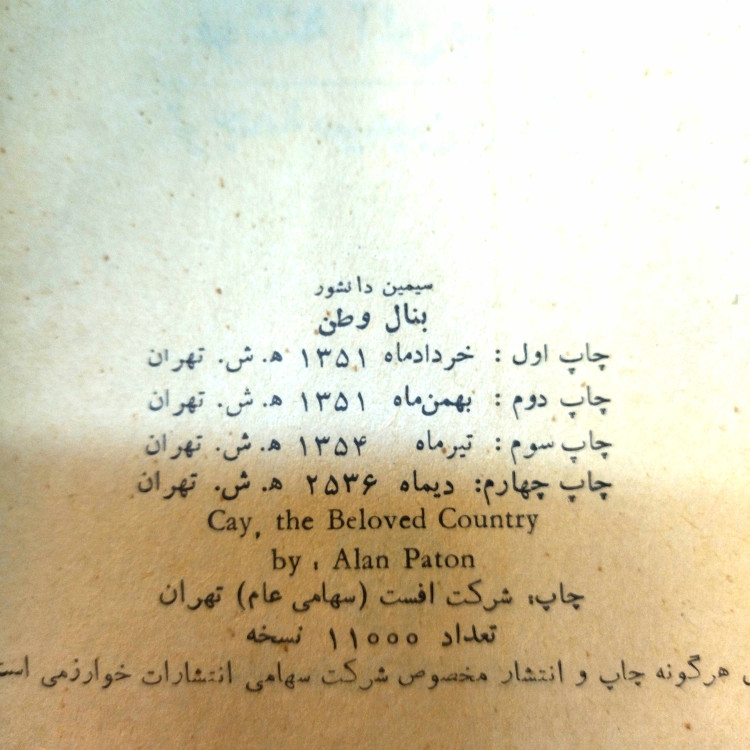 سیمین دانشور
بنال وطن
چاپ اول : خردادماه ۱۳۵۱ ه‍. ش. تهران
چاپ دوم : بهمن‌ماه ۱۳۵۱ ه‍. ش. تهران
چاپ سوم : تیرماه ۱۳۵۴ ه‍. ش. تهران
چاپ چهارم: دیماه ۲۵۳۶ ه‍. ش. تهران
Cay, the Beloved Country
by : Alan Paton
چاپ: شرکت افست (سهامی عام) تهران
تعداد ۱۱۰۰۰ نسخه
هرگونه چاپ و انتشار مخصوص شرکت سهامی انتشارات خوارزمی است